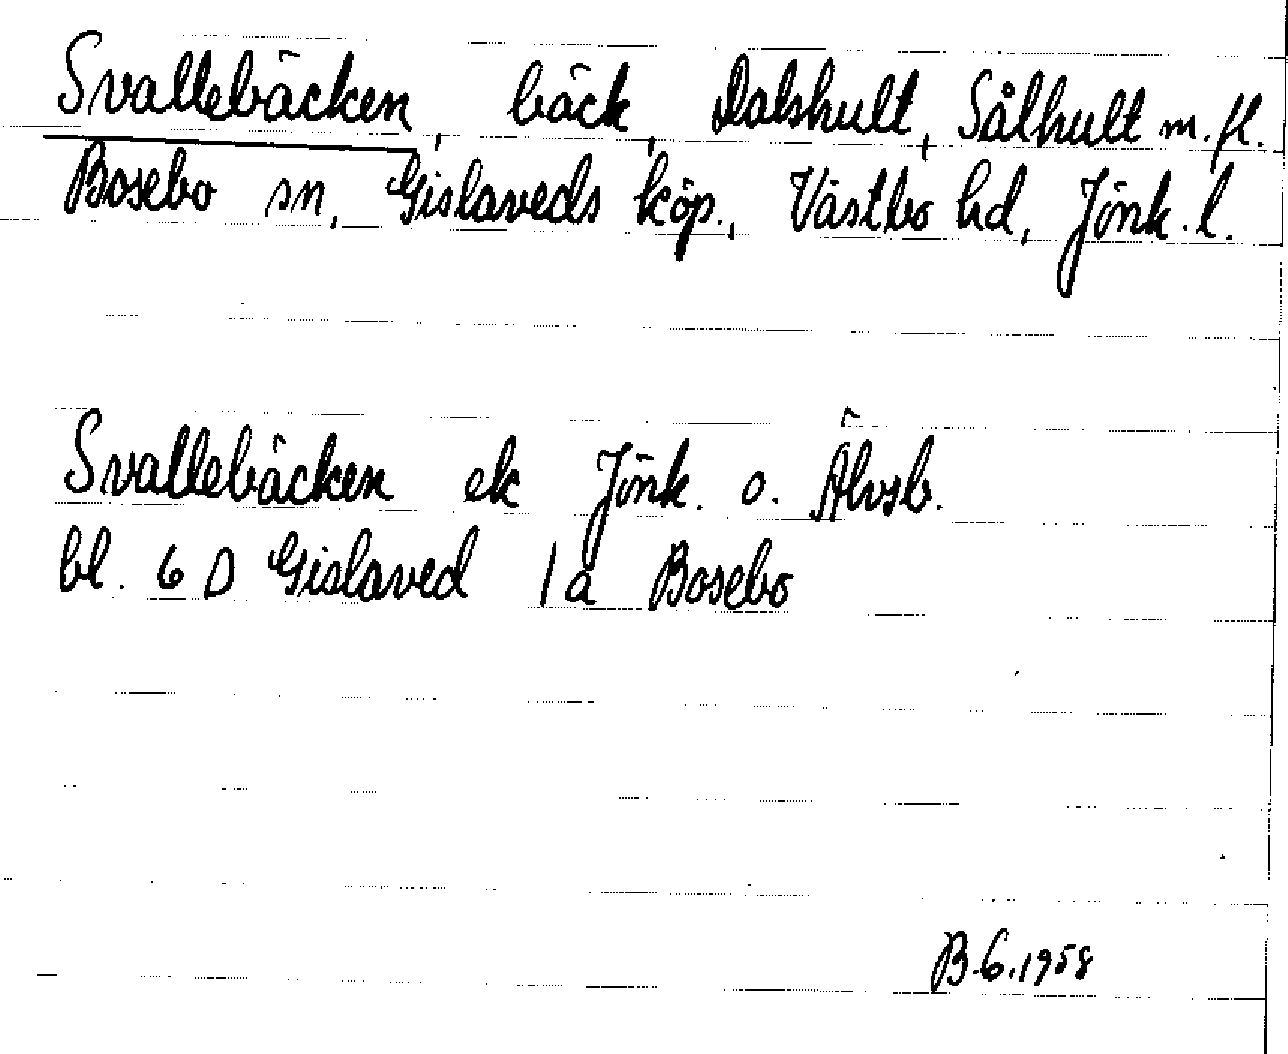 Svallebäcken, bäck, Dalshult, Sålhult m. fl.
Bosebo sn, Gislaveds köp., Västbo hd, Jönk. l.
Svallebäcken ek Jönk. o. Älvsb.
bl. 6 D Gislaved 1 a Bosebo
B.G.1958